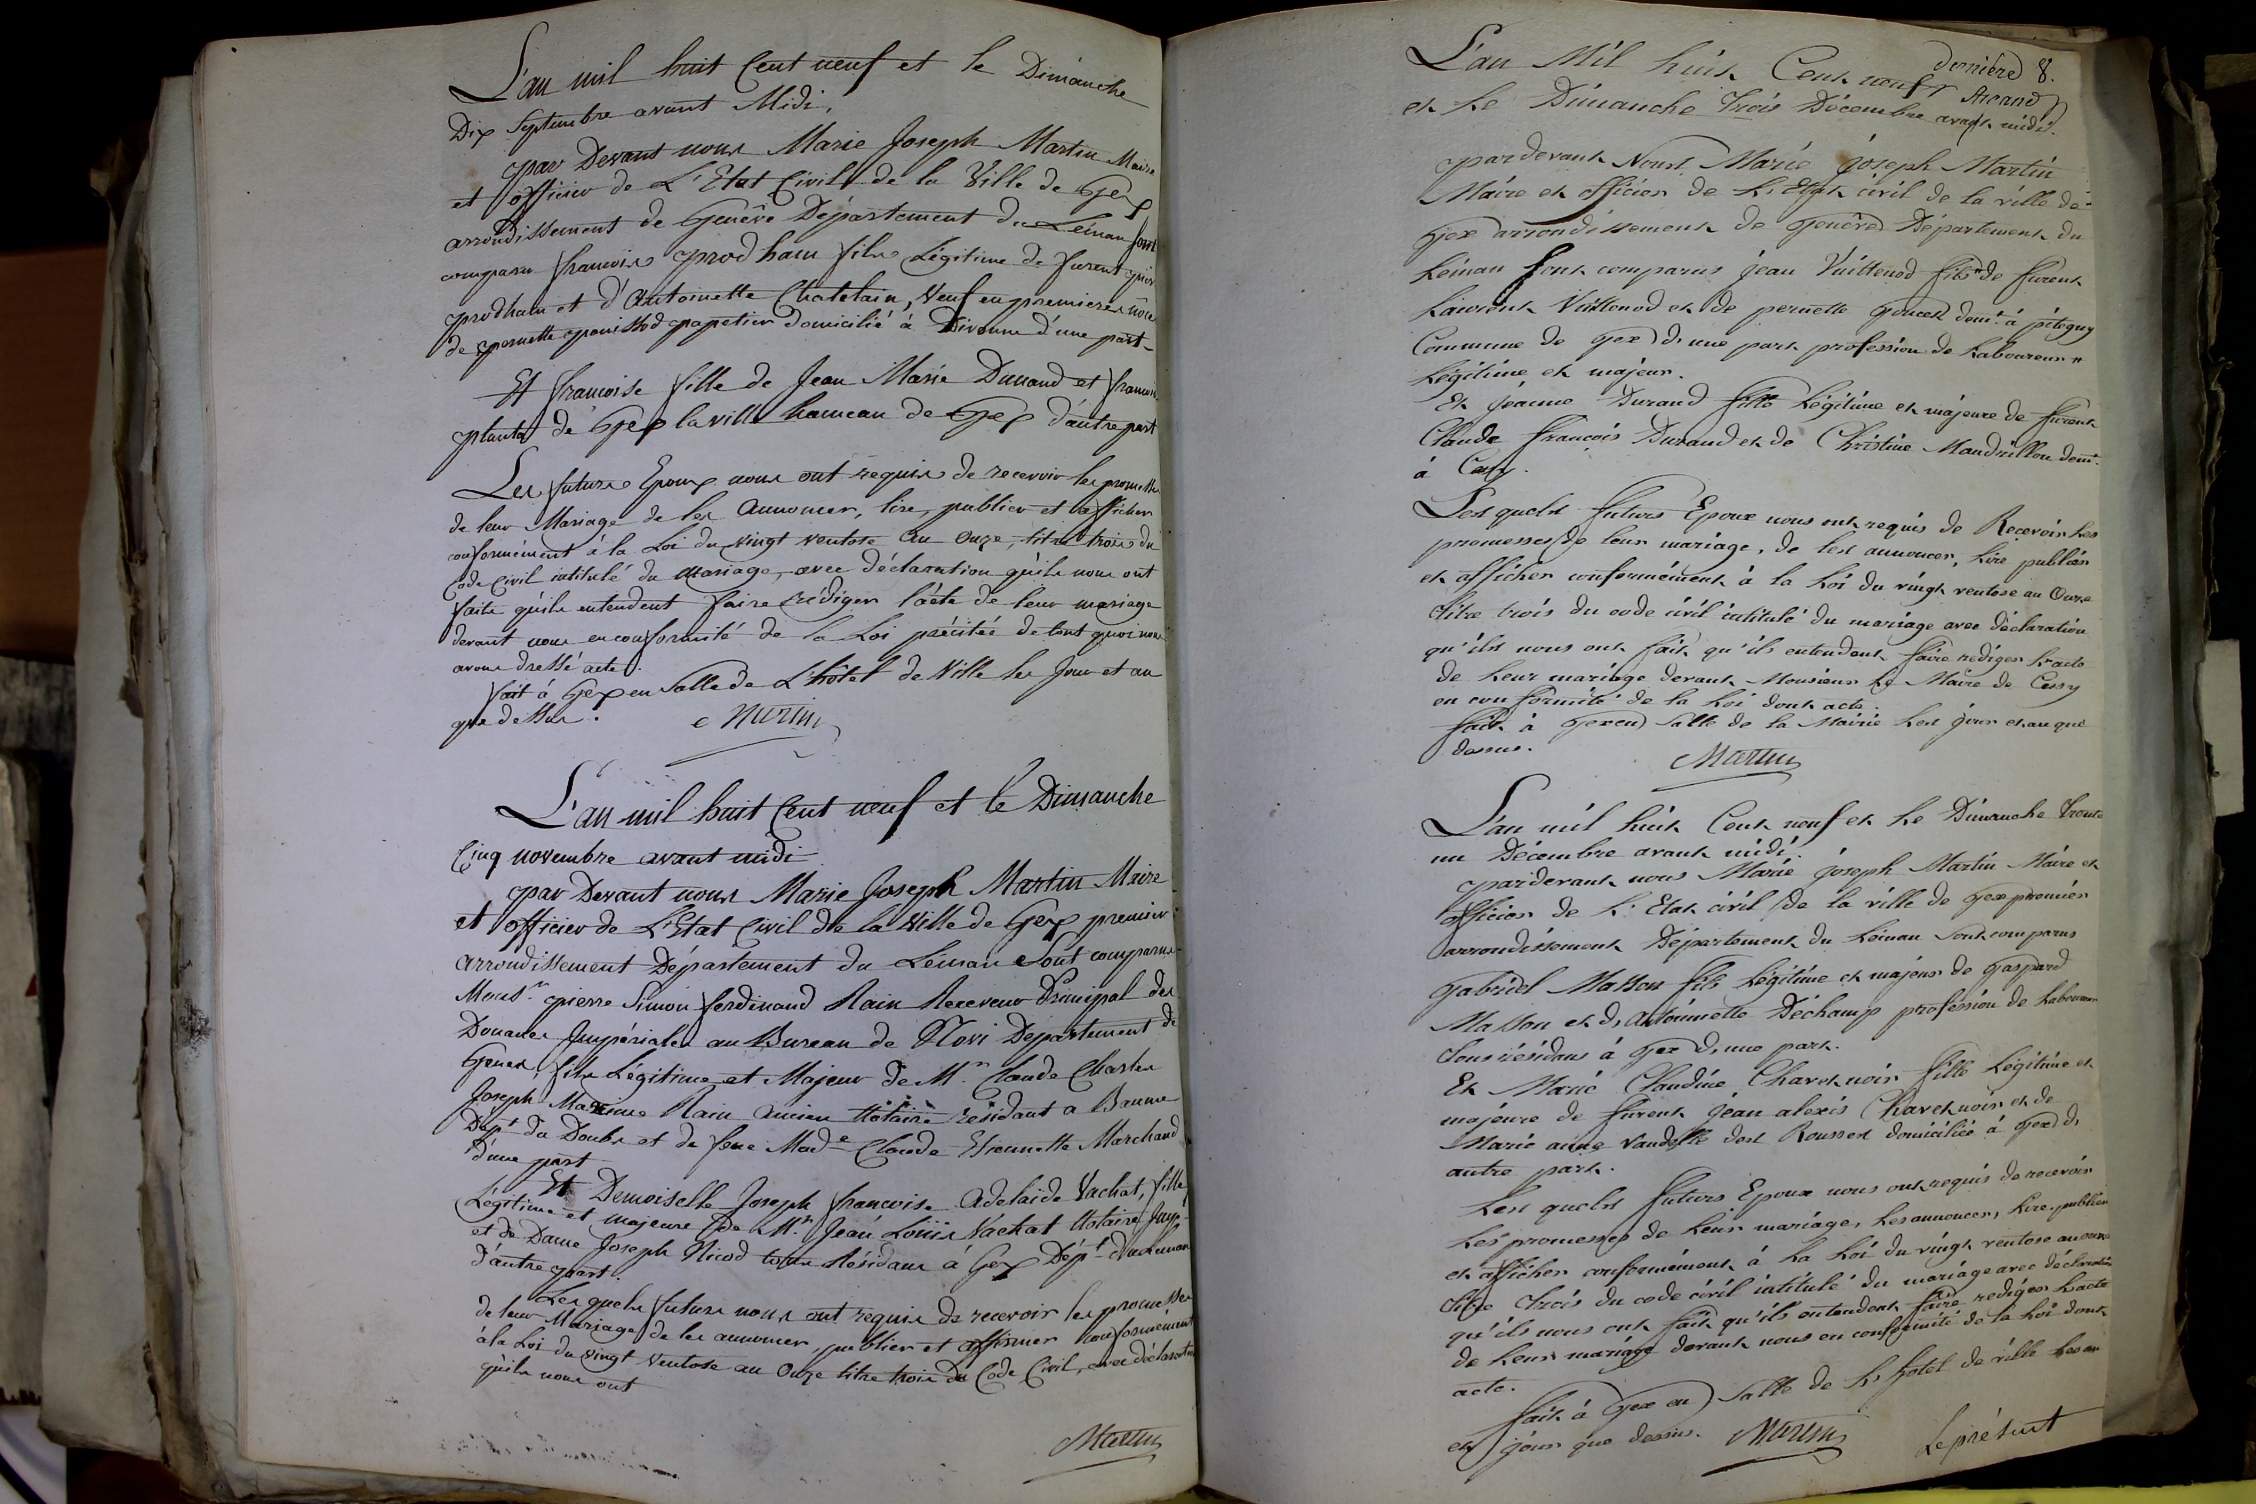 L'an mil huit Cent neuf et le Dimanche
Dix Septembre avant Midi,
par Devant nous Marie Joseph Martin Maire
et officier de L'Etat Civil de la Ville de Gex
arrondissement de Genève Département du Léman sont
comparu francois prodham fils Légitime de furent
prodham et d'Antoinette Chatelain, Veuf en premieres nôces
de pernette papetier domicilié à Divonne d'une part
Et francoise fille de Jean Marie Durand et francoise
plantz de Gex la ville hameau de Gex d'autre part
Les futurs Epoux nous ont requis de recevoir les promesses
de leur Mariage de les Annoncer, lire, publier et afficher
conformément à la Loi du vingt ventose an Onze, titre trois du
Code Civil intitulé du Mariage, avec déclaration qu'ils nous ont
faite qu'ils entendent faire rédiger l'acte de leur mariage
devant nous en conformité de la Loi précitée de tout quoi nous
avons dressé acte.
fait à Gex en Salle de L'hôtel de Ville les Jour et an
que dessus. Martin
L'an mil huit Cent neuf et le Dimanche
Cinq novembre avant midi
par Devant nous Marie Joseph Martin Maire
et officier de L'Etat Civil de la Ville de Gex premier
arrondissement Département du Léman Sont comparus
Monsr. pierre Simon ferdinand Rain Receveur Principal des
Douanes Impériales au Bureau de Novi Département de
Genes, fils Légitime et Majeur de Mr. Claude Charles
Joseph Maxime Rain ancien Notaire résidant a Baume
Dépt. du Doubs et de feue Made. Claude Etiennette Marchand
d'une part
Et Demoiselle Joseph francoise Adelaide Vachat, fille
Légitime et majeure de Mr. Jean Louis Vachat Notaire Impl.
et de Dame Joseph Nicod tous Résidans à Gex Dépt. du Léman
d'autre part.
Lesquels futurs nous ont requis de recevoir les promesses
de leur Mariage de les annoncer, publier et afficher conformément
à la Loi du vingt Ventose an Onze titre trois du Code Civil, avec déclaration
qu'ils nous ont
Martin
dernière 8.
L'an Mil huit Cent neuf
et le Dimanche trois Décembre avant midi.
par devant Nous Marie joseph Martin
Maire et officier de L'Etat civil de la ville de
Gex arrondissement de Genève Département du
Léman sont comparus jean Vuittenod fils de furent
Laurent Vuittenod et de pernette Goncet demt. à pitegny
Commune de Gex d'une part profession de Laboureur
Légitime et majeur.
Et jeanne Durand fille Légitime et majeure de furent
Claude françois Durand et de Christine Mandrillon demt.
à Cessy.
Les quels futurs Epoux nous ont requis de Recevoir Les
promesses de leur mariage, de les annoncer, Lire publier
et afficher conformément à la Loi du vingt ventose an Onze
titre trois du code civil intitulé du mariage avec déclaration
qu'ils nous ont fait qu'ils entendent faire rédiger L'acte
de Leur mariage devant Monsieur Le Maire de Cessy
en conformité de la Loi dont acte.
fait à Gex en Salle de la Mairie Les jour et an que
dessus.
Martin
L'an mil huit Cent neuf et Le Dimanche trente
un Décembre avant midi.
par devant nous Marie joseph Martin Maire et
officier de L'Etat civil de la ville de Gex premier
arrondissement Département du Léman Sont comparus
Gabriel Masson fils Légitime et majeur de Gaspard
Masson et d'Antoinette Déchamp profession de Laboureur
tous résidans à Gex d'une part.
Et Marie Claudine Chavetnoir fille Légitime et
majeure de furent jean alexis Chavetnoir et de
Marie anne Vandelle des Rousses domiciliée à Gex d'
autre part.
Les quels futurs Epoux nous ont requis de recevoir
Les promesses de Leur mariage, Les annoncer, Lire, publier
et afficher conformément à La Loi du vingt ventose an onze
titre trois du code civil intitulé du mariage avec déclaration
qu'ils nous ont fait qu'ils entendent faire rédiger L'acte
de Leur mariage devant nous en conformité de la Loi dont
acte.
fait à Gex en Salle de L'hotel de ville Les an
et jour que dessus. Martin Le présent